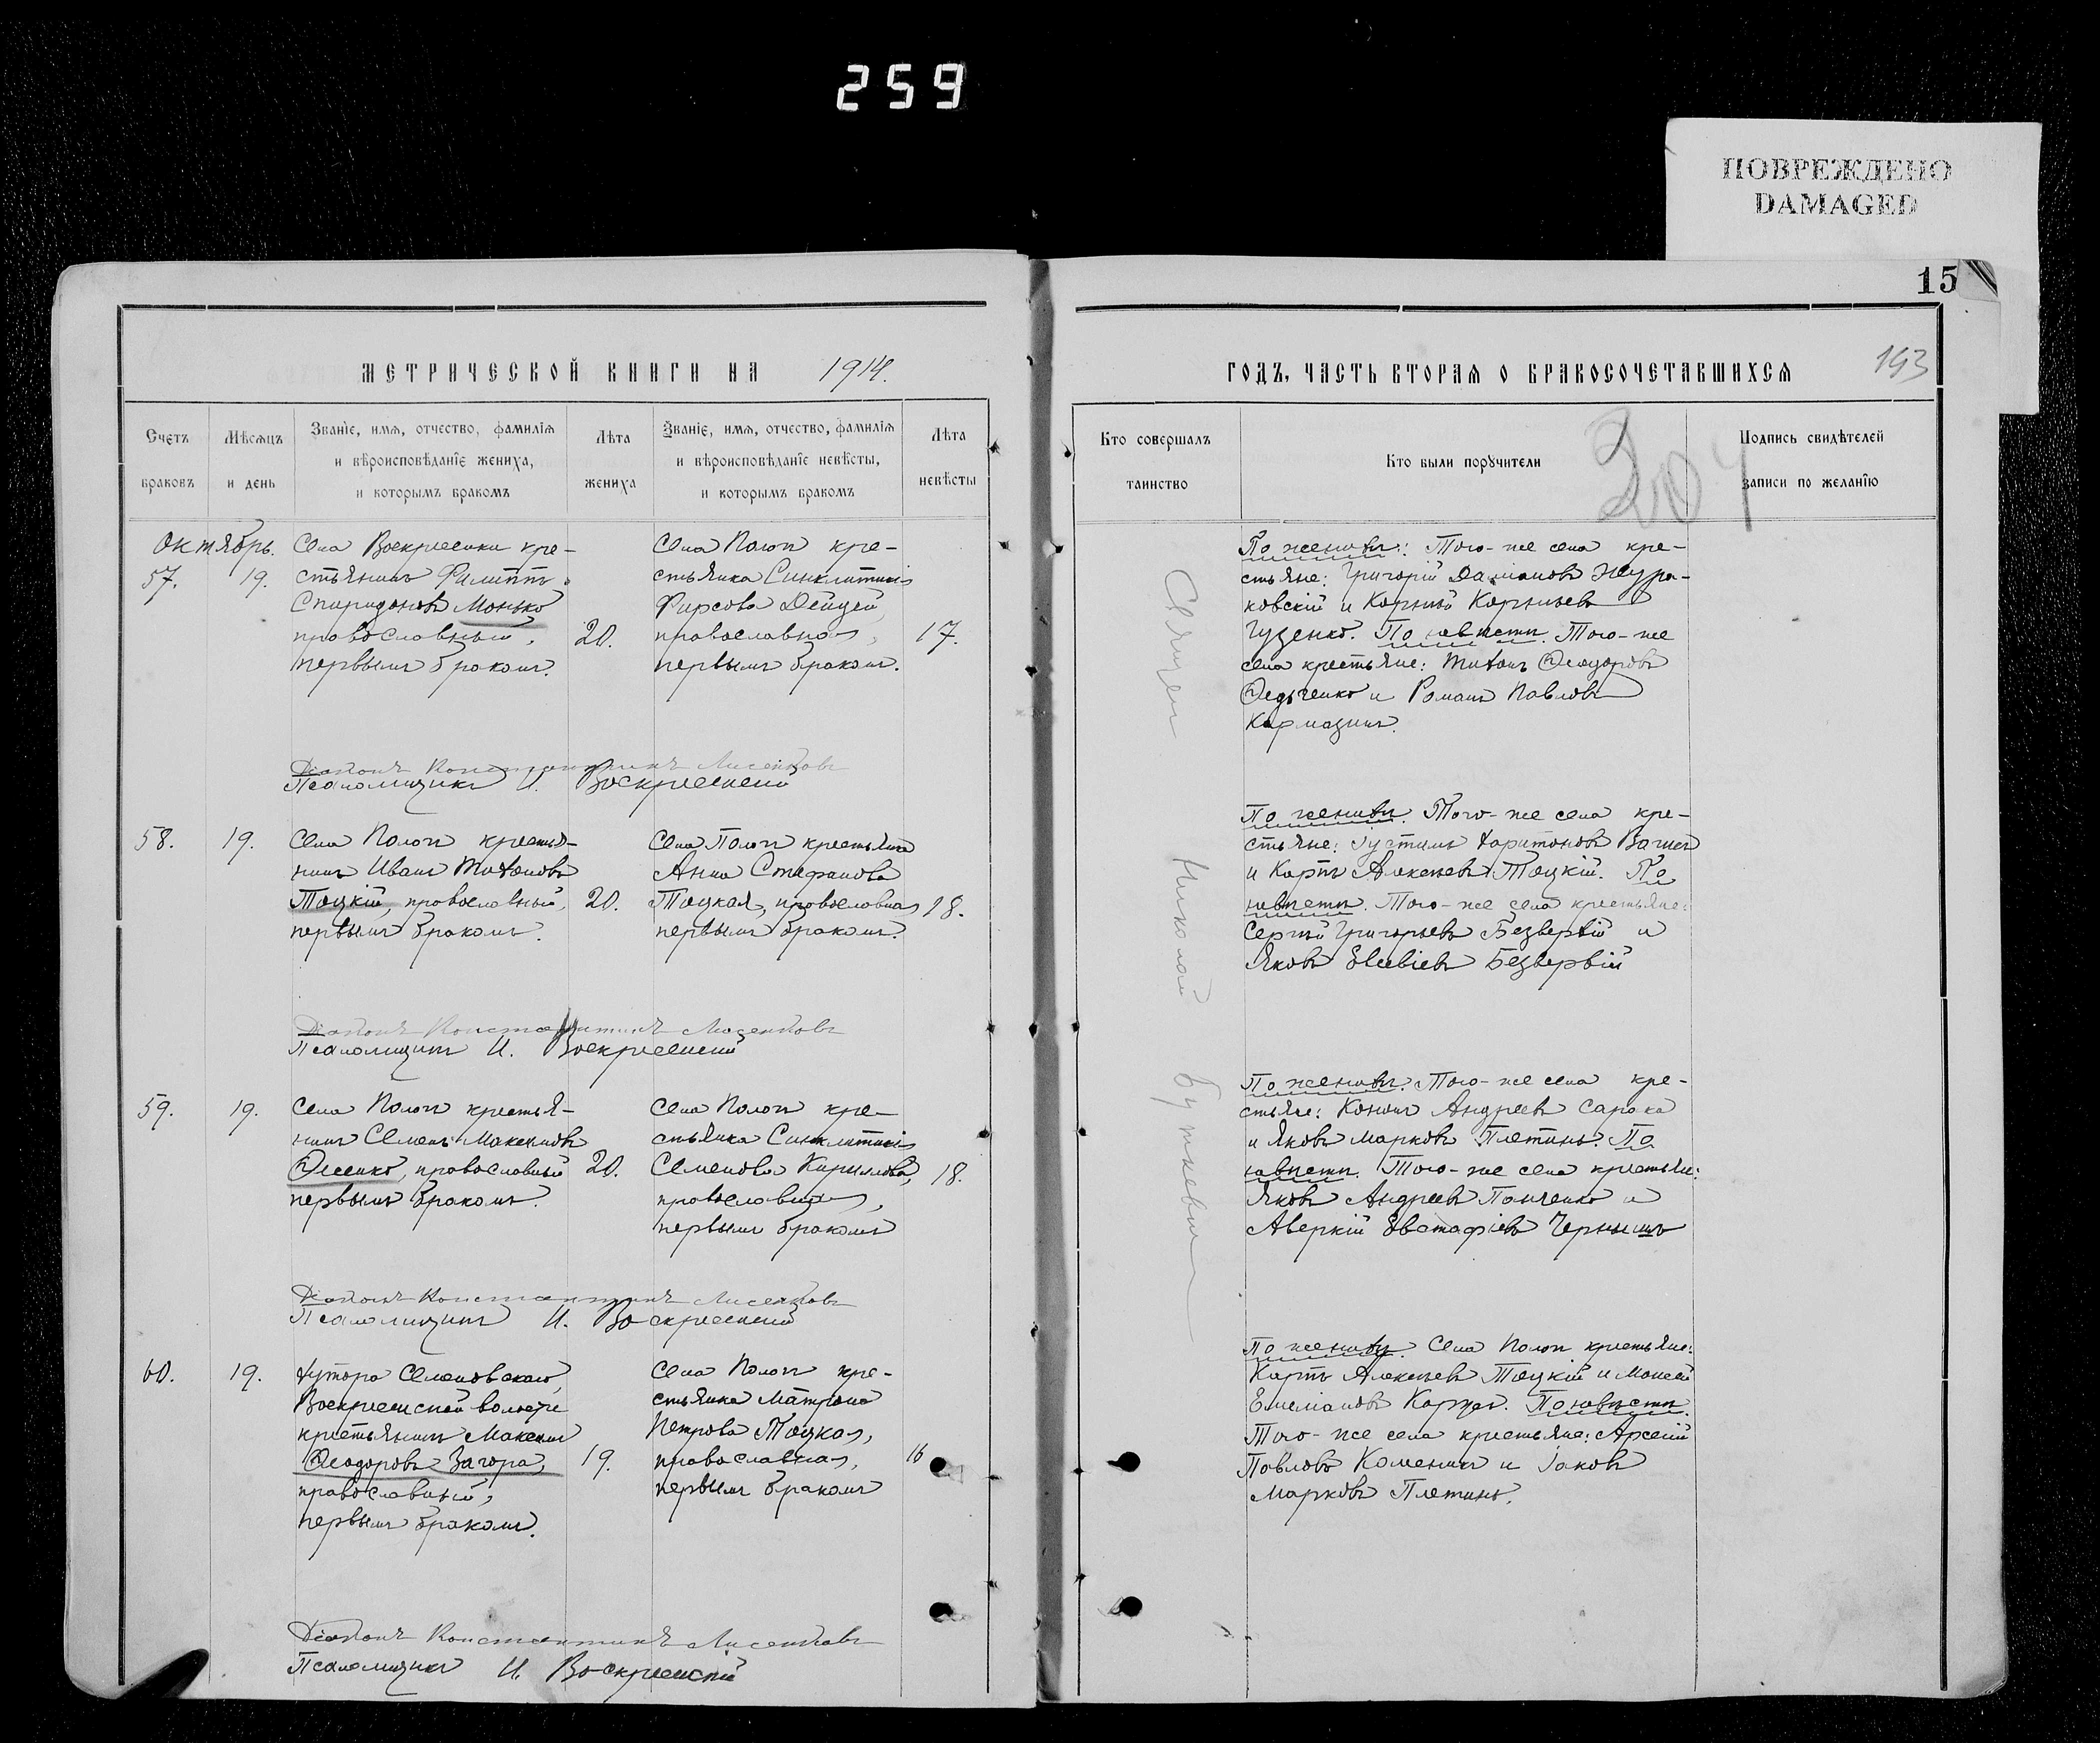 259
ПОВРЕЖДЕНО
DAMAGED
15
МЕТРИЧЕСКОЙ КНИГИ НА 1914.
Счетъ браковъ
Мѣсяцъ и день
Званіе, имя, отчество, фамилія и вѣроисповѣданіе жениха, и которымъ бракомъ
Лѣта жениха
Званіе, имя, отчество, фамилія и вѣроисповѣданіе невѣсты, и которымъ бракомъ
Лѣта невѣсты
Октябрь.
57.
19.
Села Воскресенки кре-
стьянинъ Филиппъ
Спиридоновъ Монько
православный,
первымъ бракомъ.
20.
Села Пологи кре-
стьянка Синклитикія
Фирсова Дейцей,
православная,
первымъ бракомъ.
17.
Діаконъ Константинъ Лисенковъ
Псаломщикъ И. Воскресенскій
58.
19.
Села Пологи крестья-
нинъ Иванъ Титоновъ
Тоцкій, православный,
первымъ бракомъ.
20.
Села Пологи крестьянка
Анна Стефанова
Тоцкая, православная
первымъ бракомъ.
18.
Діаконъ Константинъ Лисенковъ
Псаломщикъ И. Воскресенскій
59.
19.
Села Пологи крестья-
нинъ Семенъ Максимовъ
Ѳесенко, православный
первымъ бракомъ.
20.
Села Пологи кре-
стьянка Синклитикія
Семенова Кириллова,
православная,
первымъ бракомъ
18.
Діаконъ Константинъ Лисенковъ
Псаломщикъ И. Воскресенскій
60.
19.
Хутора Семеновскаго,
Воскресенской волости
крестьянинъ Максимъ
Ѳеодоровъ Загора,
православный,
первымъ бракомъ.
19.
Села Пологи кре-
стьянка Матрона
Петрова Тоцкая,
православная,
первымъ бракомъ
16
Діаконъ Константинъ Лисенковъ
Псаломщикъ И. Воскресенскій
ГОДЪ, ЧАСТЬ ВТОРАЯ О БРАКОСОЧЕТАВШИХСЯ
193
204
Кто совершалъ таинство
Кто были поручители
Подпись свидѣтелей записи по желанію
Священ Николай Буткевич
По женихѣ: Того-же села кре-
стьяне: Григорій Даміановъ Жура-
ковскій и Корнилій Корнильевъ
Гузенко. По невѣстѣ. Того-же
села крестьяне: Тихонъ Ѳеодоровъ
Ѳедченко и Романъ Павловъ
Кармазинъ.
По женихѣ. Того-же села кре-
стьяне: Іустинъ Харитоновъ
и Карпъ Алексѣевъ Тоцкій. По
невѣстѣ. Того-же села крестьяне:
Сергѣй Григорьевъ Безверхій и
Яковъ Евсевіевъ Безверхій
По женихѣ. Того-же села кре-
стьяне: Кононъ Андреевъ Сарока
и Яковъ Марковъ Плетинь. По
невѣстѣ. Того-же села крестьяне:
Яковъ Андреевъ Панченко и
Аверкій Евстафіевъ Чернышъ
По женихѣ. Села Пологи крестьяне:
Карпъ Алексѣевъ Тоцкій и Моисей
Емеліановъ Коржев. По невѣстѣ.
Того-же села крестьяне: Арсеній
Павловъ Каменикъ и Іаковъ
Марковъ Плетинь.